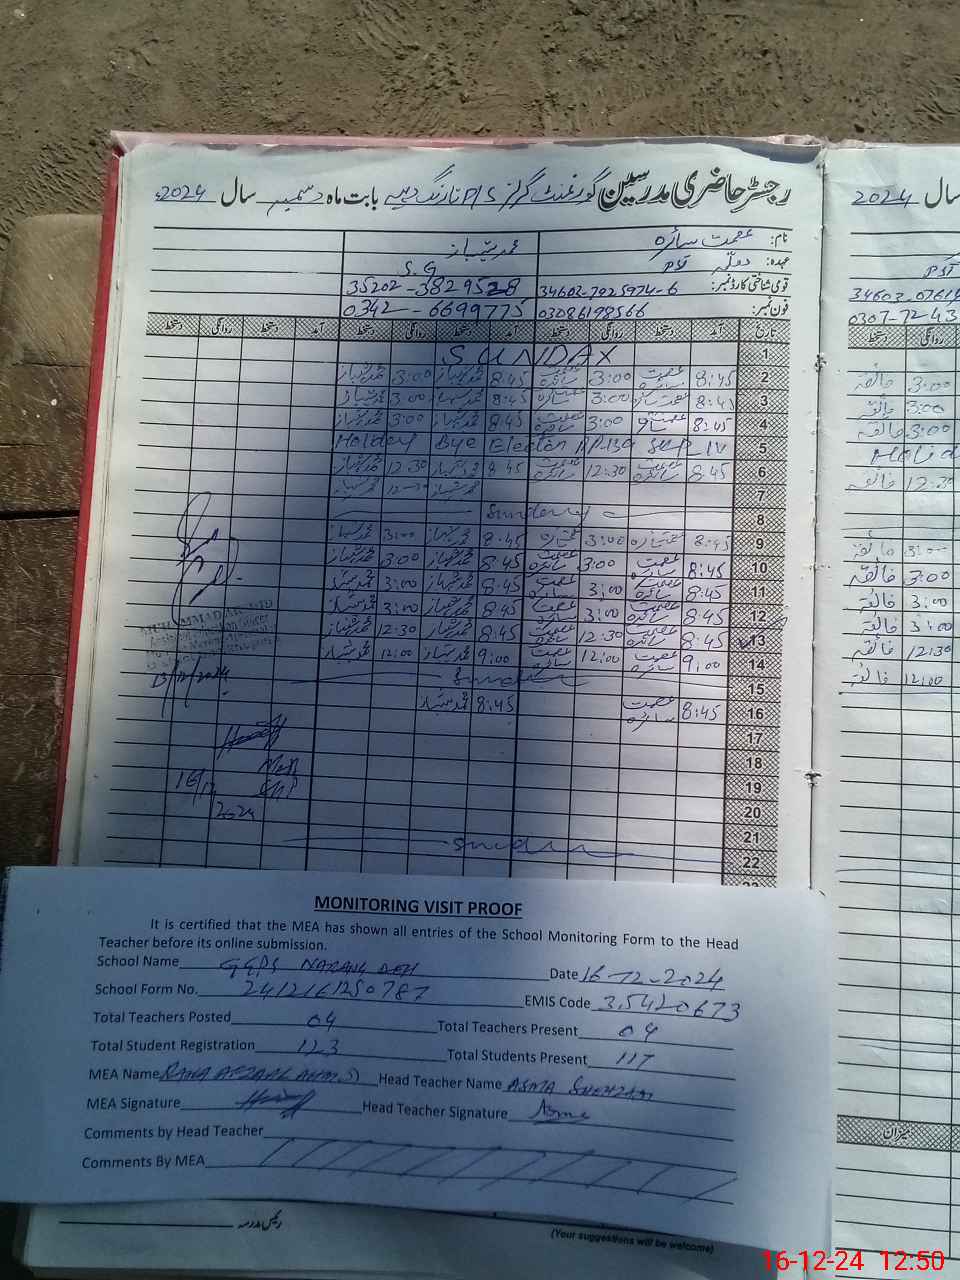 رجسٹر حاضری مدرسین گورنمنٹ گرلز P/S نارنگ دیہہ بابت ماہ دسمبر سال 2024ء
نام: عصمت سائرہ محمد شہباز
عہدہ: PST S.G
قومی شناختی کارڈ نمبر: 34602-7025974-6 35202-3829528
فون نمبر: 03086198566 0342-6699775
تاریخ آمد دستخط روانگی دستخط آمد دستخط روانگی دستخط آمد دستخط روانگی دستخط
1 SUNDAY
2 8:45 عصمت سائرہ 3:00 عصمت سائرہ 8:45 محمد شہباز 3:00 محمد شہباز
3 8:45 عصمت سائرہ 3:00 عصمت سائرہ 8:45 محمد شہباز 3:00 محمد شہباز
4 8:45 عصمت سائرہ 3:00 عصمت سائرہ 8:45 محمد شہباز 3:00 محمد شہباز
5 Holiday Bye Election PP.139
6 8:45 عصمت سائرہ 12:30 عصمت سائرہ 8:45 محمد شہباز 12:30 محمد شہباز
7 محمد شہباز محمد شہباز
8 Sunday
9 8:45 عصمت سائرہ 3:00 عصمت سائرہ 8:45 محمد شہباز 3:00 محمد شہباز
10 8:45 عصمت سائرہ 3:00 عصمت سائرہ 8:45 محمد شہباز 3:00 محمد شہباز
11 8:45 عصمت سائرہ 3:00 عصمت سائرہ 8:45 محمد شہباز 3:00 محمد شہباز
12 8:45 عصمت سائرہ 3:00 عصمت سائرہ 8:45 محمد شہباز 3:00 محمد شہباز
13 8:45 عصمت سائرہ 12:30 عصمت سائرہ 8:45 محمد شہباز 12:30 محمد شہباز
14 9:00 عصمت سائرہ 12:00 عصمت سائرہ 9:00 محمد شہباز 12:00 محمد شہباز
15 Sunday
16 8:45 عصمت سائرہ 8:45 محمد شہباز
17
18
19
20
21
22 Sunday
13/12/2024
MEA
16/12
2024
MONITORING VISIT PROOF
It is certified that the MEA has shown all entries of the School Monitoring Form to the Head
Teacher before its online submission.
School Name GGPS NARANG DEH Date 16-12-2024
School Form No. 2412161250787 EMIS Code 35420673
Total Teachers Posted 04 Total Teachers Present 04
Total Student Registration 123 Total Students Present 117
MEA Name RANA AFZAAL AHMAD Head Teacher Name ASMA SHEHZADI
MEA Signature Head Teacher Signature Asma
Comments by Head Teacher
Comments By MEA
رئیس مدرسہ
(Your suggestions will be welcome)
سال 2024ء
PST
34603-07614
0307-7243
روانگی دستخط
3:00 خالقہ
3:00 خالقہ
3:00 خالقہ
12:30 خالقہ
3:00 خالقہ
3:00 خالقہ
3:00 خالقہ
3:00 خالقہ
12:30 خالقہ
12:00 خالقہ
میزان
16-12-24 12:50